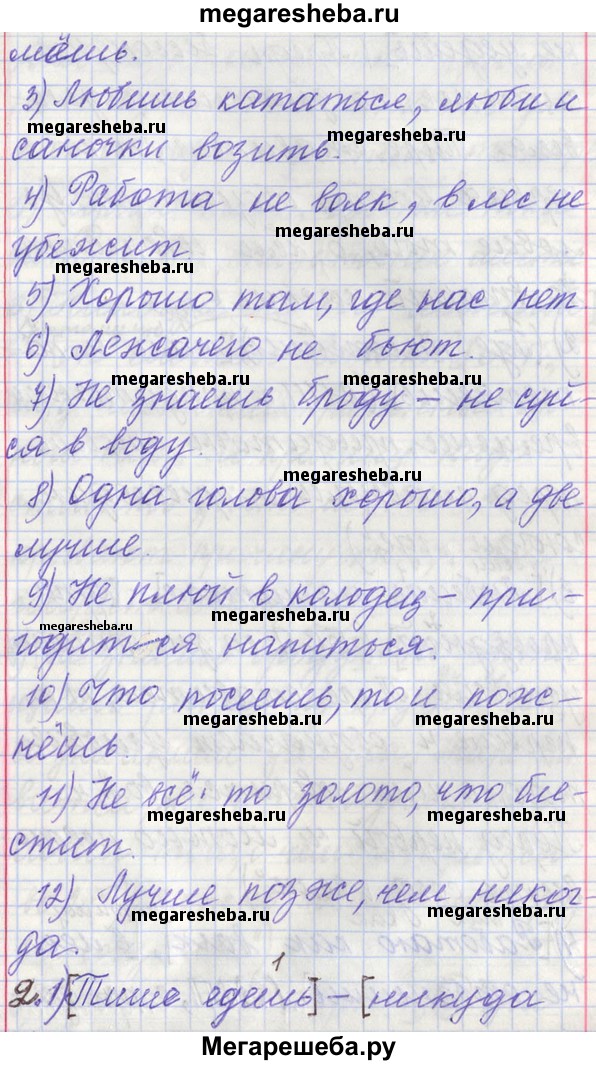 megaresheba.ru
мёшь.
3) Любишь кататься, люби и
megaresheba.ru
megaresheba.ru
саночки возить.
4) Работа не волк, в лес не
megaresheba.ru
убежит
megaresheba.ru
5) Хорошо там, где нас нет
6) Лежачего не бьют.
megaresheba.ru
megaresheba.ru
7) Не знаешь броду – не суй-
ся в воду.
megaresheba.ru
8) Одна голова хорошо, а две
лучше.
9) Не плюй в колодец – при-
megaresheba.ru
megaresheba.ru
годится напиться.
10) Что посеешь, то и пож-
megaresheba.ru
megaresheba.ru
нёшь.
11) Не всё то золото, что бле-
megaresheba.ru
megaresheba.ru
стит.
12) Лучше позже, чем никог-
megaresheba.ru
megaresheba.ru
да.
1
2. 1) [Тише едешь] – [никуда
Мегарешеба.ру